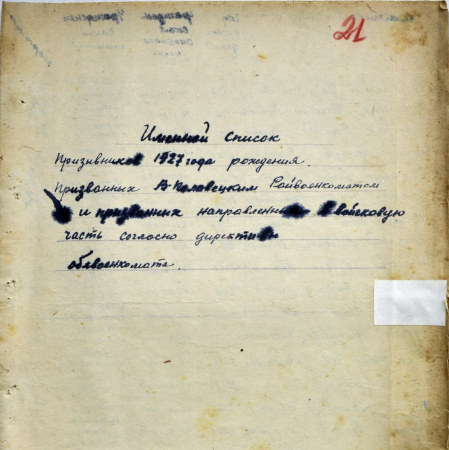 21
Именной список
Призывников 1927 года рождения.
Призванных В-Коловецким Райвоенкоматом
и призванных направленных в войсковую
часть согласно директивы
облвоенкомата.